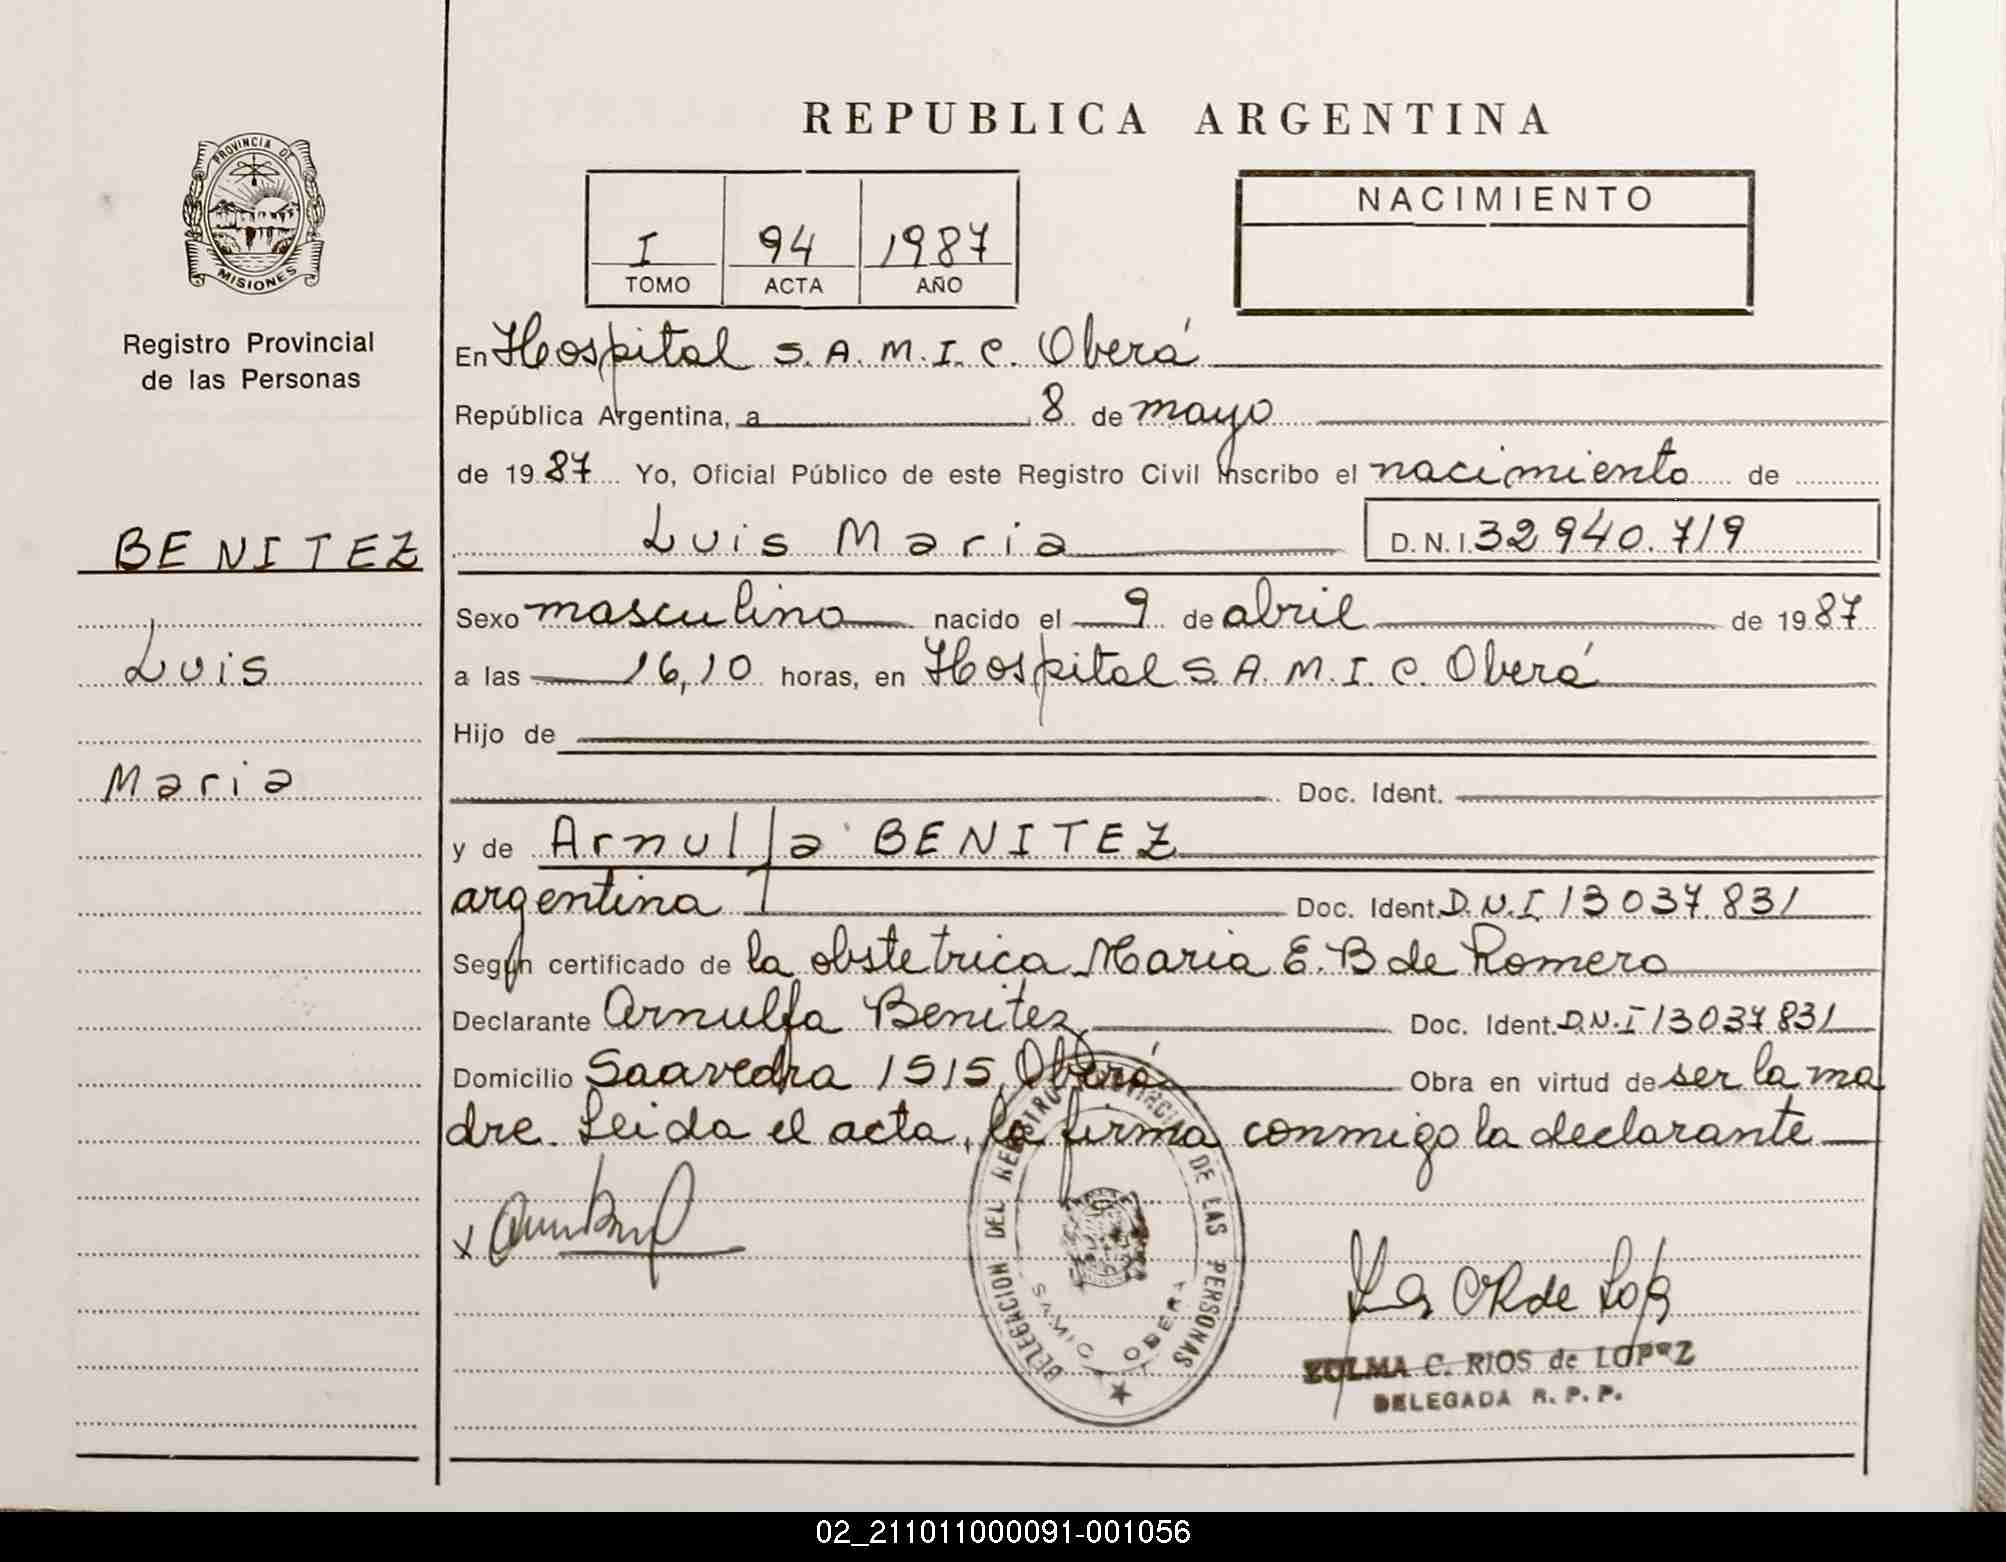 REPUBLICA ARGENTINA
PROVINCIA DE
MISIONES
Registro Provincial
de las Personas
I 94 1987
TOMO ACTA AÑO
NACIMIENTO
En Hospital S.A.M.I.C. Oberá
República Argentina, a 8 de mayo
de 1987 Yo, Oficial Público de este Registro Civil inscribo el nacimiento de
BENITEZ
Luis Maria D.N.I. 32 940.719
Sexo masculino nacido el 9 de abril de 1987
Luis
a las 16,10 horas, en Hospital S.A.M.I.C. Oberá
Hijo de
Maria
Doc. Ident.
y de Arnulfa BENITEZ
argentina Doc. Ident. D.N.I 13 037.831
Según certificado de la obstetrica Maria E. B de Romero
Declarante Arnulfa Benitez Doc. Ident. D.N.I 13037831
Domicilio Saavedra 1515, Oberá Obra en virtud de ser la ma
dre. Leida el acta, la firma conmigo la declarante
DELEGACION DEL REGISTRO PROVINCIAL DE LAS PERSONAS
SAMIC OBERA
ZULMA C. RIOS de LOPEZ
DELEGADA R. P. P.
02_211011000091-001056